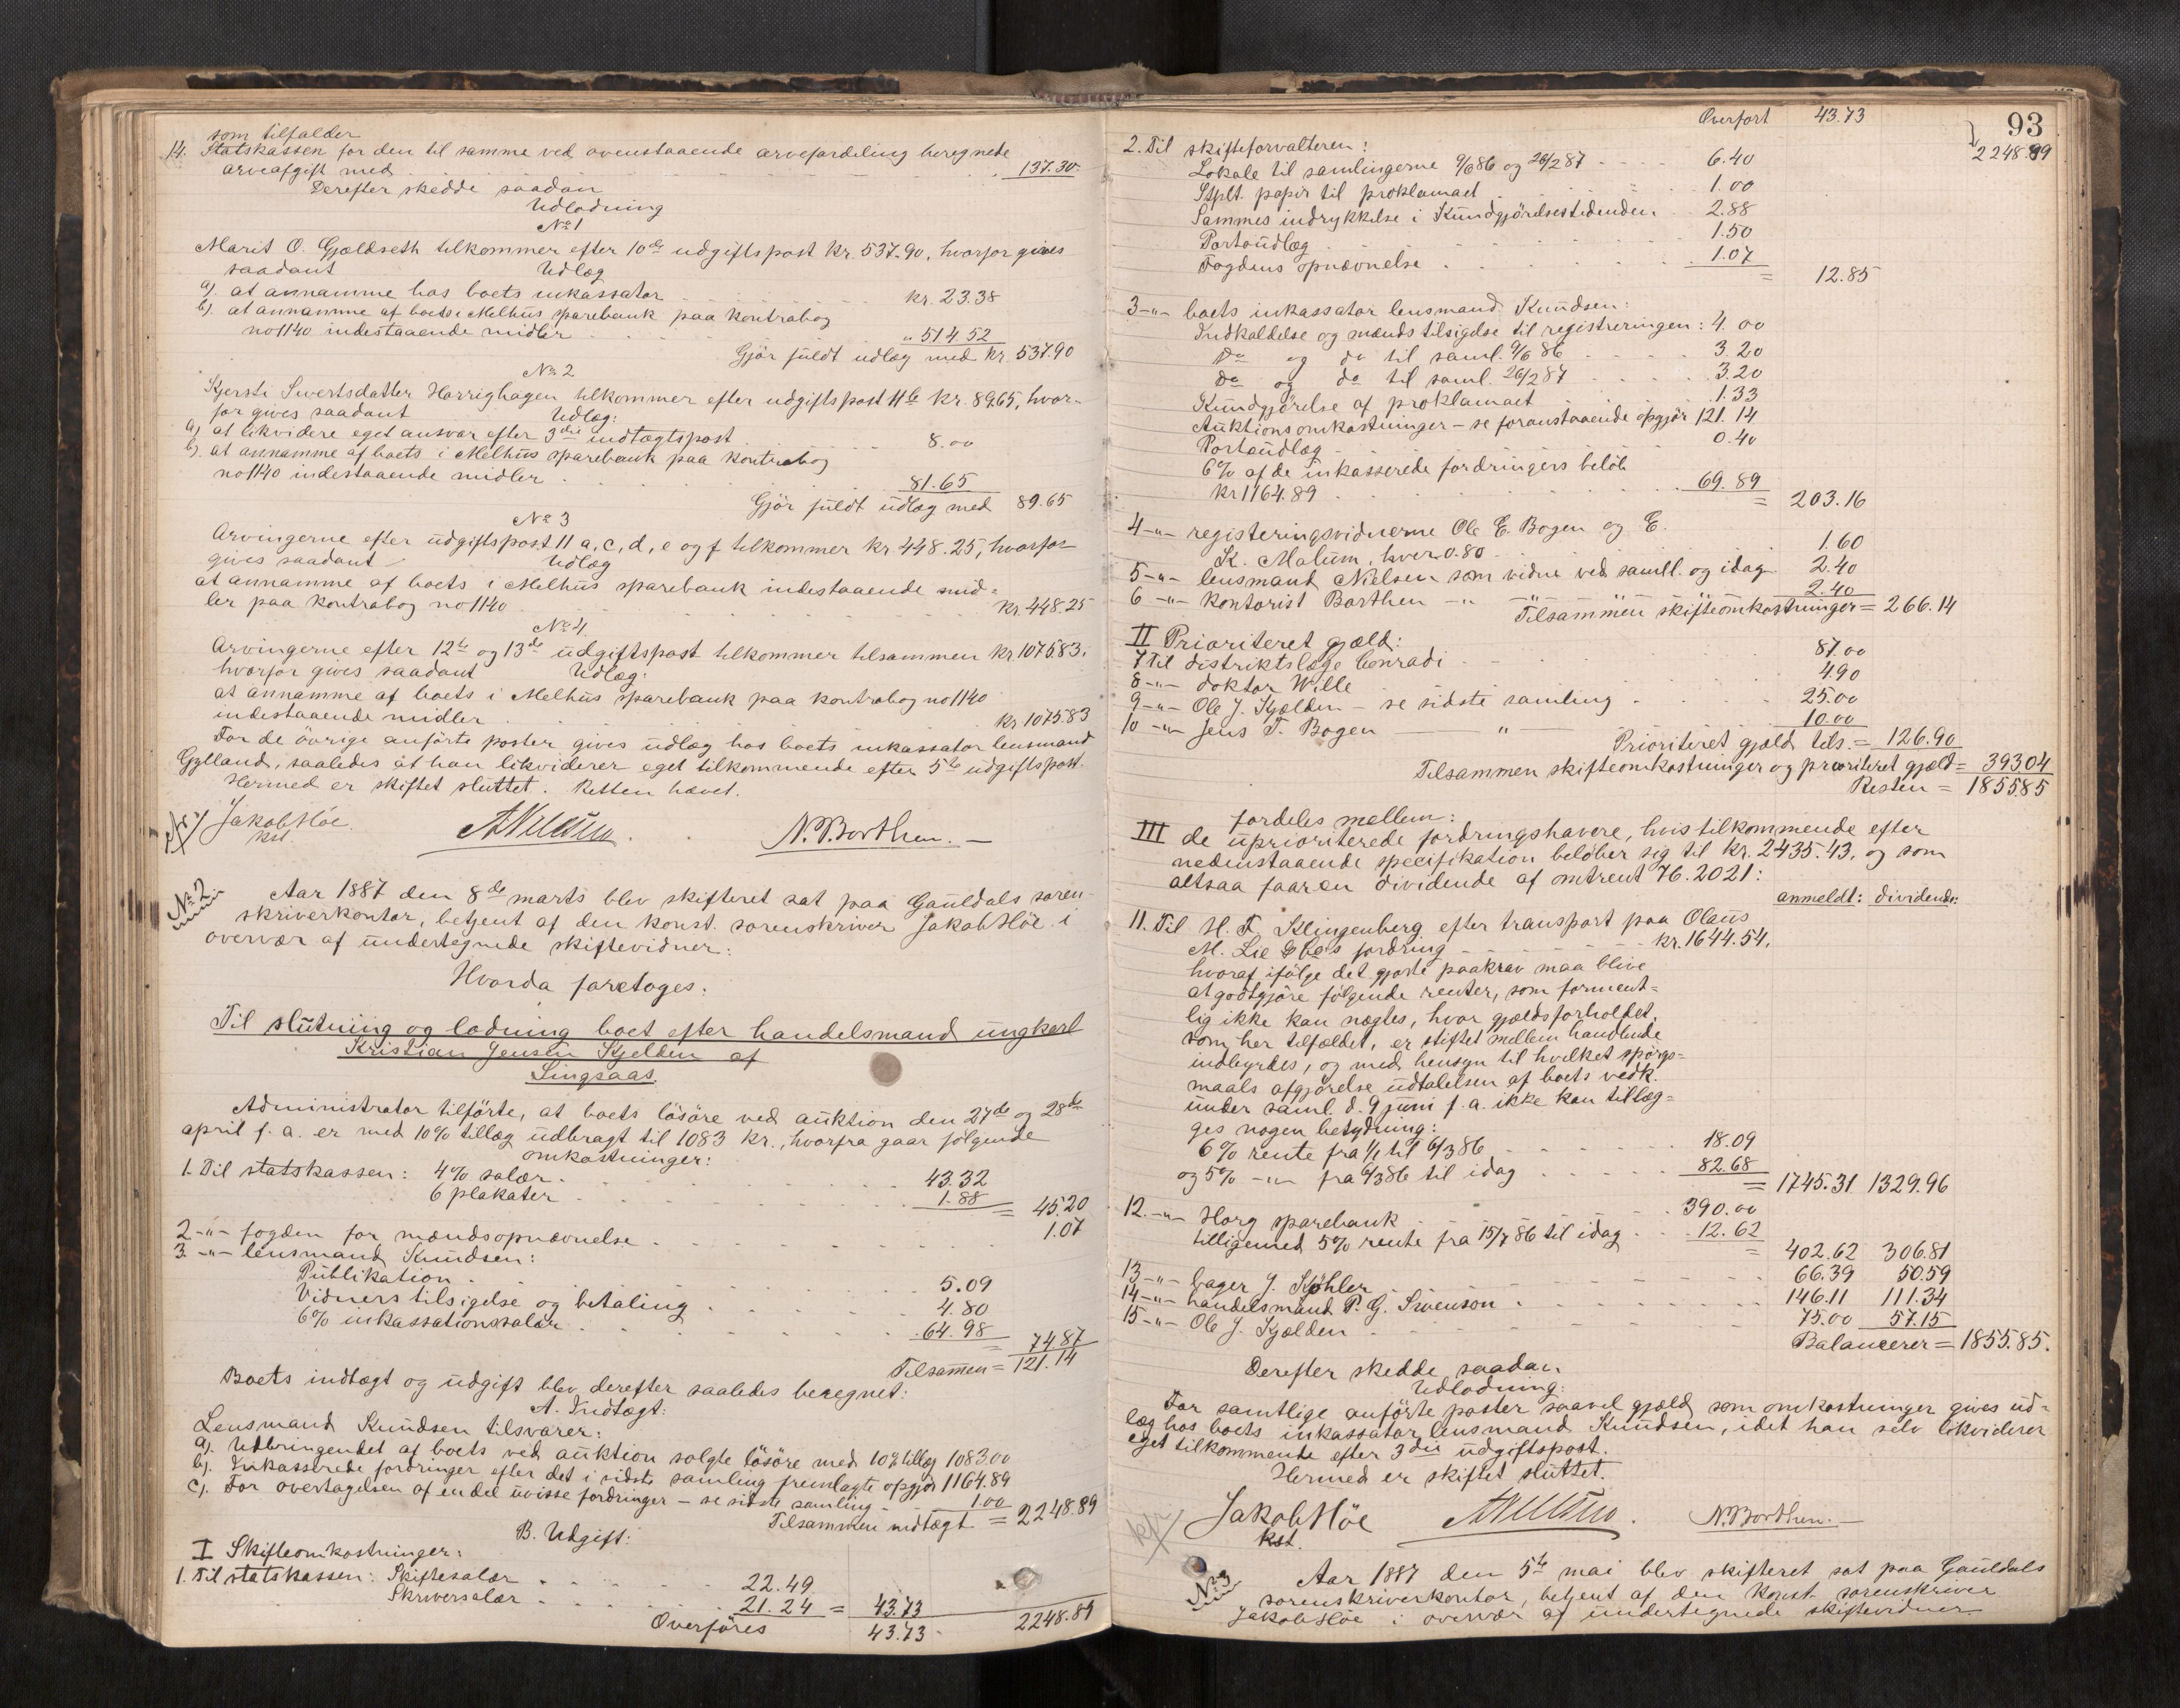 som tilfalder
14. Statskassen for den til samme ved ovenstaaende arvefordeling beregnede
arveafgift med . 137.30.
Derefter skedde saadan
Udlodning
No 1
Marit O. Gjældseth tilkommer efter 10de udgiftspost kr. 537.90, hvorfor gives
saadant Udlæg
a). at annamme hos boets inkassator kr. 23.38
b). at annamme af boets i Melhus sparebank paa kontrabog
no 1140 indestaaende midler " 514.52
Gjør fuldt udlæg med kr. 537.90
No 2
Kjersti Sivertsdatter Horrighagen tilkommer efter udgiftspost 11b kr. 89.65, hvor-
for gives saadant Udlæg:
a) at likvidere eget ansvar efter 3die indtægtspost 8.00
b). at annamme af boets i Melhus sparebank paa kontrabog
no 1140 indestaaende midler 81.65
Gjør fuldt udlæg med 89.65
No 3
Arvingerne efter udgiftspost 11 a, c, d, e og f tilkommer kr. 448.25, hvorfor
gives saadant Udlæg
at annamme af boets i Melhus sparebank indestaaende mid=
ler paa kontrabog no 1140 kr. 448.25
No 4
Arvingerne efter 12te og 13de udgiftspost tilkommer tilsammen kr. 1075.83.
hvorfor gives saadant Udlæg:
at annamme af boets i Melhus sparebank paa kontrabog no 1140
indestaaende midler kr. 1075.83
For de øvrige anførte poster gives udlæg hos boets inkassator lensmand
Gylland, saaledes at han likviderer eget tilkommende efter 5te udgiftspost.
Hermed er skiftet sluttet. Retten hævet.
Jakob Höe
kst.
N. Borthen.
No 2
Aar 1887 den 8de marts blev skifteret sat paa Gauldals soren-
skriverkontor, betjent af den konst. sorenskriver Jakob Höe i
overvær af undertegnede skiftevidner:
Hvorda foretoges:
Til slutning og lodning boet efter handelsmand ungkarl
Kristian Jensen Kjelden af
Singsaas.
Administrator tilførte, at boets løsøre ved auktion den 27de og 28de
april f. a. er med 10% tillæg udbragt til 1083 kr., hvorfra gaar følgende
omkostninger:
1. Til statskassen: 4% salær 43.32
6 plakater 1.88 = 45.20
2 -"- fogden for mændsopnævnelse 1.07
3 -"- lensmand Knudsen:
Publikation 5.09
Vidners tilsigelse og betaling 4.80
6% inkassationssalær 64.98 = 74.87
Tilsammen = 121.14
Boets indtægt og udgift blev derefter saaledes beregnet:
A. Indtægt:
Lensmand Knudsen tilsvarer:
a). Udbringendet af boets ved auktion solgte løsøre med 10% tillæg 1083.00
b). Inkasserede fordringer efter det i sidste samling fremlagte opgjør 1164.89
c). For overtagelsen af endel uvisse fordringer - se sidste samling 1.00
Tilsammen indtægt = 2248.89
B. Udgift:
I Skifteomkostninger:
1. Til statskassen: Skiftesalær 22.49
Skriversalær 21.24 = 43.73
Overføres 43.73 2248.89
93
Overført 43.73 2248.89
2. Til skifteforvalteren:
Lokale til samlingerne 9/6 86 og 26/2 87 6.40
Stplt. papir til proklamaet 1.00
Sammes indrykkelse i Kundgjørelsestidenden 2.88
Portoudlæg 1.50
Fogdens opnævnelse 1.07 = 12.85
3 -"- boets inkassator lensmand Knudsen:
Indkaldelse og mænds tilsigelse til registreringen: 4.00
Do og do til saml. 9/6 86 3.20
Do og do til saml. 26/2 87 3.20
Kundgjørelse af proklamaet 1.33
Auktionsomkostninger - se foranstaaende opgjør 121.14
Portoudlæg 0.40
6% af de inkasserede fordringers beløb
kr 1164.89 69.89 = 203.16
4 -"- registeringsvidnerne Ole E. Bogen og E.
K. Malum, hver 0.80 1.60
5 -"- lensmand Nielsen som vidne ved samll. og idag 2.40
6 -"- kontorist Borthen -"- -"- 2.40
Tilsammen skifteomkostninger = 266.14
II Prioriteret gjæld:
7 Til distriktslæge Conradi 87.00
8 -"- doktor Wille 4.90
9 -"- Ole J. Kjælden - se sidste samling 25.00
10 -"- Jens T. Bogen — " — 10.00
Prioriteret gjæld tils. = 126.90
Tilsammen skifteomkostninger og prioriteret gjæld = 393.04
Resten = 1855.85
fordeles mellem:
III de uprioriterede fordringshavere, hvis tilkommende efter
nedenstaaende specifikation beløber sig til kr. 2435.43, og som
altsaa faar en dividende af omtrent 76.2021:
anmeldt: dividende:
11. Til H. F. Klingenberg efter transport paa Olaus
M. Lie & Co's fordring kr. 1644.54,
hvoraf ifølge det gjorte paakrav maa blive
at godtgjøre følgende renter, som forment=
lig ikke kan nægtes, hvor gjældsforholdet,
som her tilfældet, er stiftet mellem handlende
indbyrdes, og med hensyn til hvilket spørgs=
maals afgjørelse udtalelsen af boets vedk.
under saml. d. 9 juni f. a. ikke kan tillæg=
ges nogen betydning:
6% rente fra 1/1 til 6/3 86 18.09
og 5% -"- fra 6/3 86 til idag 82.68 = 1745.31 1329.96
12. -"- Horg sparebank 390.00
tilligemed 5% rente fra 15/7 86 til idag 12.62 = 402.62 306.81
13 -"- bager J. Køhler 66.39 50.59
14 -"- handelsmand P. G. Svenson 146.11 111.34
15 -"- Ole J. Kjælden 75.00 57.15
Balancerer = 1855.85.
Derefter skedde saadan
Udlodning:
For samtlige anførte poster saavel gjæld som omkostninger gives ud=
læg hos boets inkassator lensmand Knudsen, idet han selv likviderer
eget tilkommende efter 3die udgiftspost.
Hermed er skiftet sluttet.
Jakob Höe
kst.
N. Borthen.
No 3
Aar 1887 den 5te mai blev skifteret sat paa Gauldals
sorenskriverkontor, betjent af den konst. sorenskriver
Jakob Höe i overvær af undertegnede skiftevidner